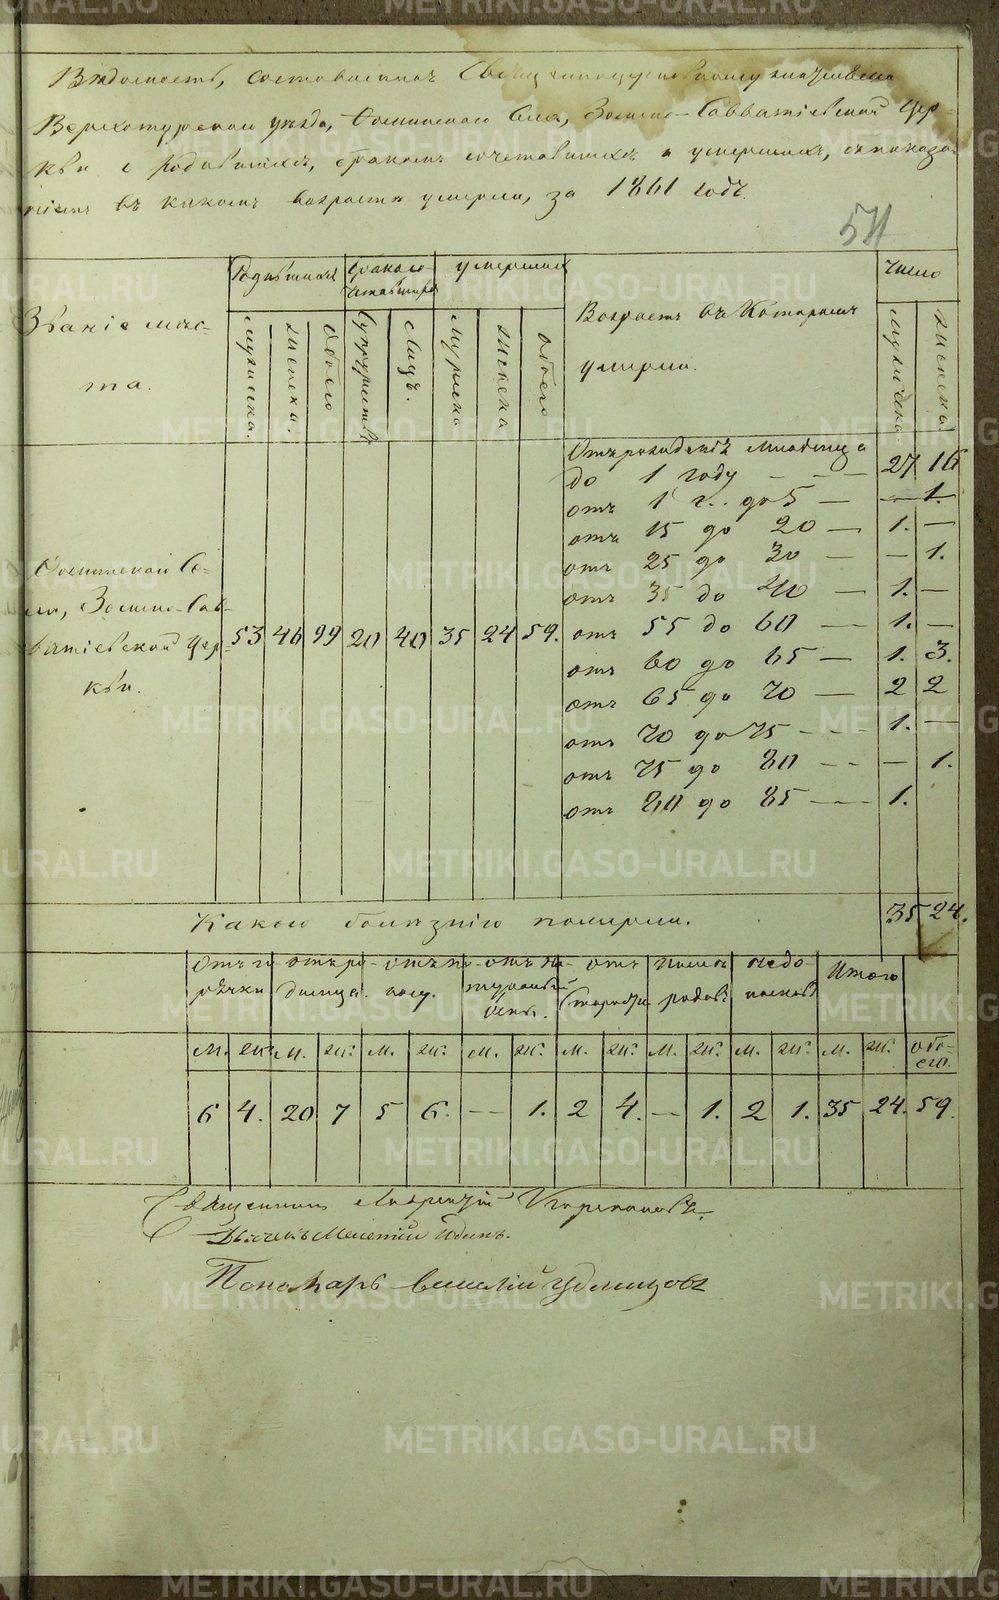 METRIKI.GASO-URAL.RU
Вѣдомость, составленная Священноцерковнослужителями
Верхотурскаго уѣзда, Фоминскаго Села, Зосимо-Савватіевской Цер-
кви о родившихся, бракомъ сочетавшихся и умершихъ, съ показа-
ніемъ въ какомъ возрастѣ умерли, за 1861 годъ.
54
Званіе мѣс-
та.
Родившихся
бракосо-
четавшихся
умершихъ
Возрастъ въ Которомъ
умерли.
Число
мужеска.
женска.
Обоего
Супружествъ
Лицъ.
Мужеска
женска
обоего
мужеска
женска
Отъ рожденія младенца
до 1 году - - - 27 16
отъ 1 г. до 5 — — 1.
отъ 15 до 20 — 1. —
отъ 25 до 30 — — 1.
отъ 35 до 40 — 1. —
отъ 55 до 60 — 1. —
отъ 60 до 65 — 1. 3.
отъ 65 до 70 — 2 2
отъ 70 до 75 - - - 1. —
отъ 75 до 80 - - — 1.
отъ 80 до 85 - - - 1.
Фоминскаго Се-
ла, Зосимо-Сав-
ватіевской Цер-
кви.
53 46 99 20 40 35 24 59.
Какою болѣзнію померли.
35 24.
Отъ го-
рячки
отъ ро-
димца.
отъ по-
носу.
отъ на-
туральной
оспы.
отъ
старости
послѣ
родовъ
Итого
м. ж. м. ж. м. ж. м. ж. м. ж. м. ж. м. ж. м. ж. обо-
его.
6 4. 20 7 5 6. — 1. 2 4. — 1. 2 1. 35 24. 59.
Священникъ Лаврентій
Дьячекъ Мелетій Юдинъ.
Пономарь Василій Удинцовъ